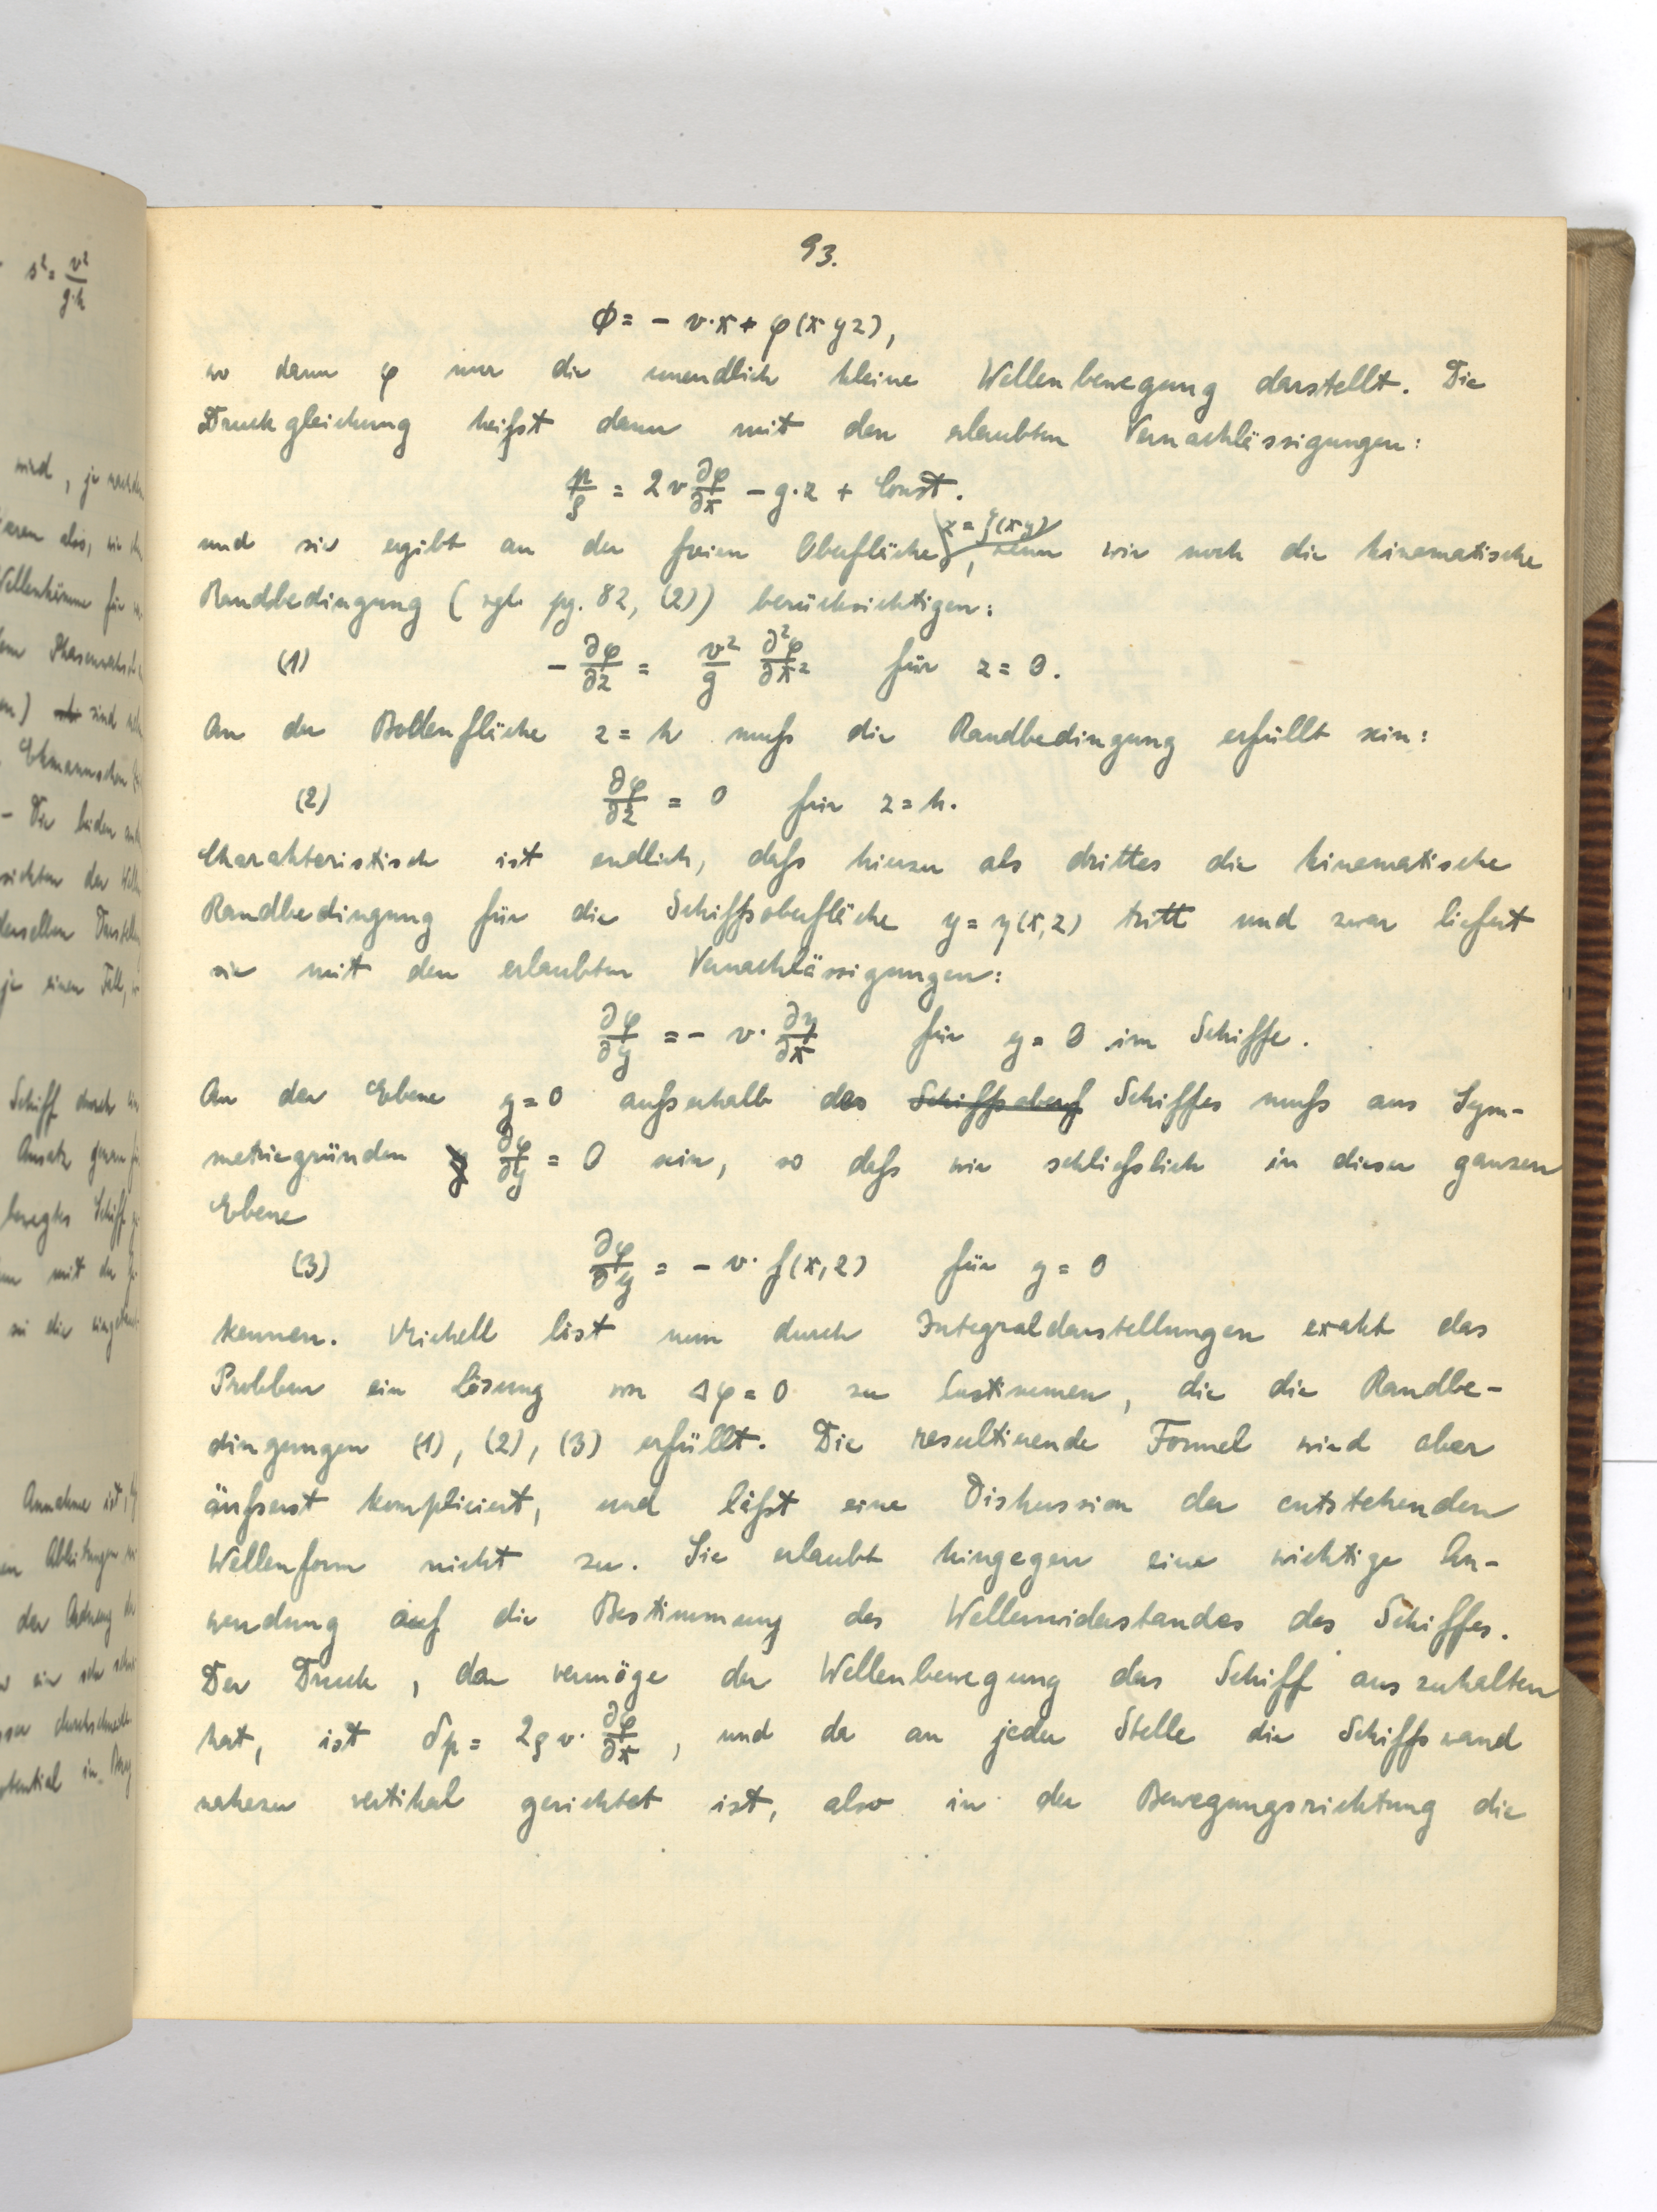 s² = v²/g·h
93.
ϕ = - v·x + φ(x y z),
wo dann φ nur die unendlich kleine Wellenbewegung darstellt. Die
Druckgleichung heißt dann mit den erlaubten Vernachlässigungen:
p/ρ = 2v ∂φ/∂x - g·z + Const.
und sie ergibt an der freien Oberfläche z = ζ(x y), wenn wir noch die kinematische
Randbedingung (vgl. pg. 82, (2)) berücksichtigen:
(1) - ∂φ/∂z = v²/g ∂²φ/∂x² für z = 0.
An der Bodenfläche z = h muß die Randbedingung erfüllt sein:
(2) ∂φ/∂z = 0 für z = h.
Charakteristisch ist endlich, daß hierzu als drittes die kinematische
Randbedingung für die Schiffsoberfläche y = y(x,z) tritt und zwar liefert
sie mit den erlaubten Vernachlässigungen:
∂φ/∂y = - v· ∂y/∂x für y = 0 im Schiffe.
An der Ebene y = 0 außerhalb des Schiffsoberf Schiffes muß aus Sym-
metriegründen ∂φ/∂y = 0 sein, so daß wir schließlich in dieser ganzen
Ebene
(3) ∂φ/∂y = - v· f(x,z) für y = 0
kennen. Michell löst nun durch Integraldarstellungen exakt das
Problem ein Lösung von Δφ = 0 zu bestimmen, die die Randbe-
dingungen (1), (2), (3) erfüllt. Die resultierende Formel wird aber
äußerst kompliciert, und läßt eine Diskussion der entstehenden
Wellenform nicht zu. Sie erlaubt hingegen eine wichtige An-
wendung auf die Bestimmung des Wellenwiderstandes des Schiffes.
Der Druck, den vermöge der Wellenbewegung das Schiff auszuhalten
hat, ist δp = 2ρv· ∂φ/∂x, und da an jeder Stelle die Schiffswand
nahezu vertikal gerichtet ist, also in der Bewegungsrichtung die